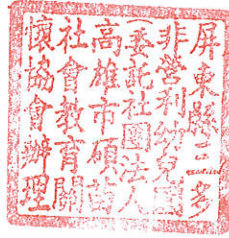 屏東縣三多
非營利幼兒園
(委託社團法人
高雄市碩苗
社會教育關
懷協會辦理